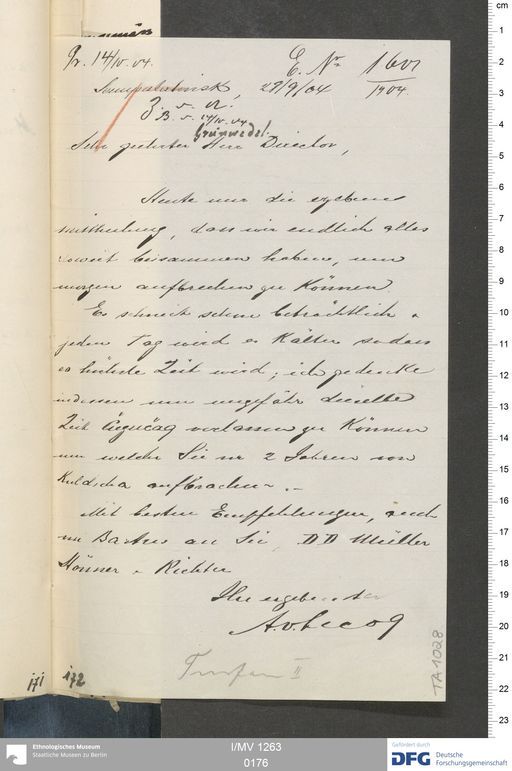 Pr. 14/IV. 04.
E. Nr 1601
1904.
Semipalatinsk, 29/9/04
Z. d. A.
B. v. 14/IV. 04
Grünwedel.
Sehr geehrter Herr Director,
Heute nur die ergebene
Mittheilung, dass wir endlich alles
soweit beisammen haben, um
morgen aufbrechen zu Können.
Es schneit schon beträchtlich u
jeden Tag wird es Kälter so dass
es höchste Zeit wird; ich gedenke
indessen um ungefähr dieselbe
Zeit Čugučaq verlassen zu Können
um welche Sie vor 2 Jahren von
Kuldscha aufbrachen.–
Mit besten Empfehlungen, auch
von Bartus an Sie, DD Müller
Hönner u Richter
Ihr ergebenster
A.v.Lecoq
Turfan II
TA 1028
171 172
cm
1
2
3
4
5
6
7
8
9
10
11
12
13
14
15
16
17
18
19
20
21
22
23
Ethnologisches Museum
Staatliche Museen zu Berlin
I/MV 1263
0176
Gefördert durch
DFG Deutsche
Forschungsgemeinschaft